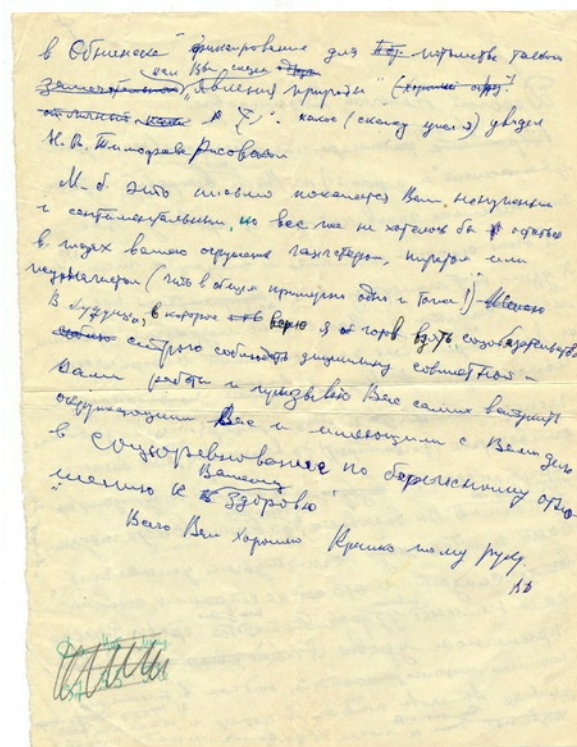 в Обнинске фиксирование для потомства такого
как Вы сказали
"явления природы"
каков (сколько успел) увидел
Н. В. Тимофеева-Рисовский
М. б. это письмо покажется Вам ненужным
и сентиментальным, но все же не хотелось бы остаться
в глазах вашего окружения гангстером, пиратом или
журналистом (что в общем примерно одно и тоже!)
В будущем, в которое верю я готов взять соцобязательство
строго соблюдать дисциплину совместной с
Вами работы и призываю Вас самих вступить
окружающими Вас и имеющими с Вами дело
в соцсоревнование по бережному отно-
Вашему
шению к "Здоровью"
Всего Вам хорошего Крепко жму руку.